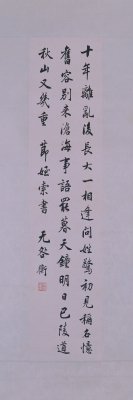 十年離亂後長大一相逢問姓驚初見稱名憶
舊容別来滄海事語罷暮天鐘明日巴陵道
秋山又幾重 節姪索書 无咎衡